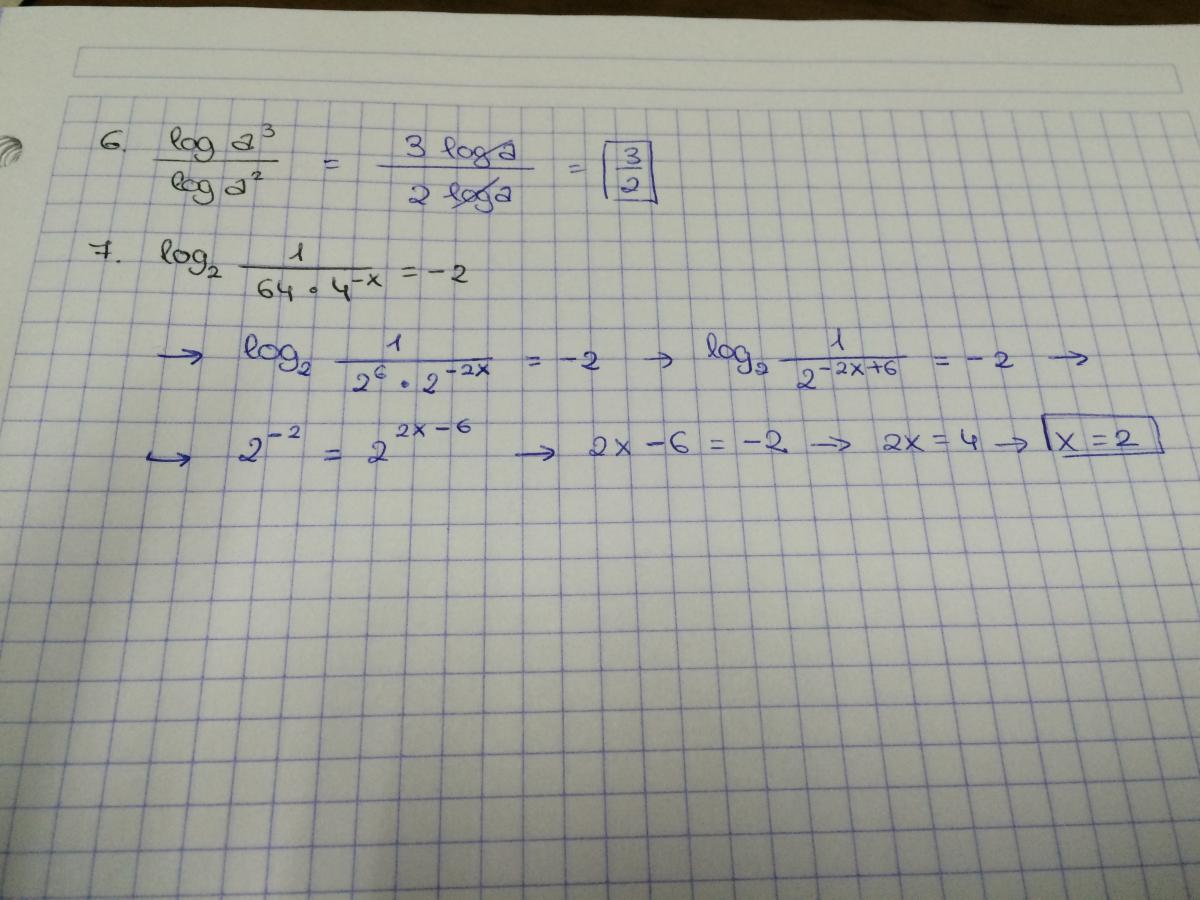 6. log a³ / log a² = 3 log a / 2 log a = 3/2
7. log₂ 1 / (64 · 4⁻ˣ) = -2
→ log₂ 1 / (2⁶ · 2⁻²ˣ) = -2 → log₂ 1 / 2⁻²ˣ⁺⁶ = -2 →
↪ 2⁻² = 2²ˣ⁻⁶ → 2x - 6 = -2 → 2x = 4 → x = 2